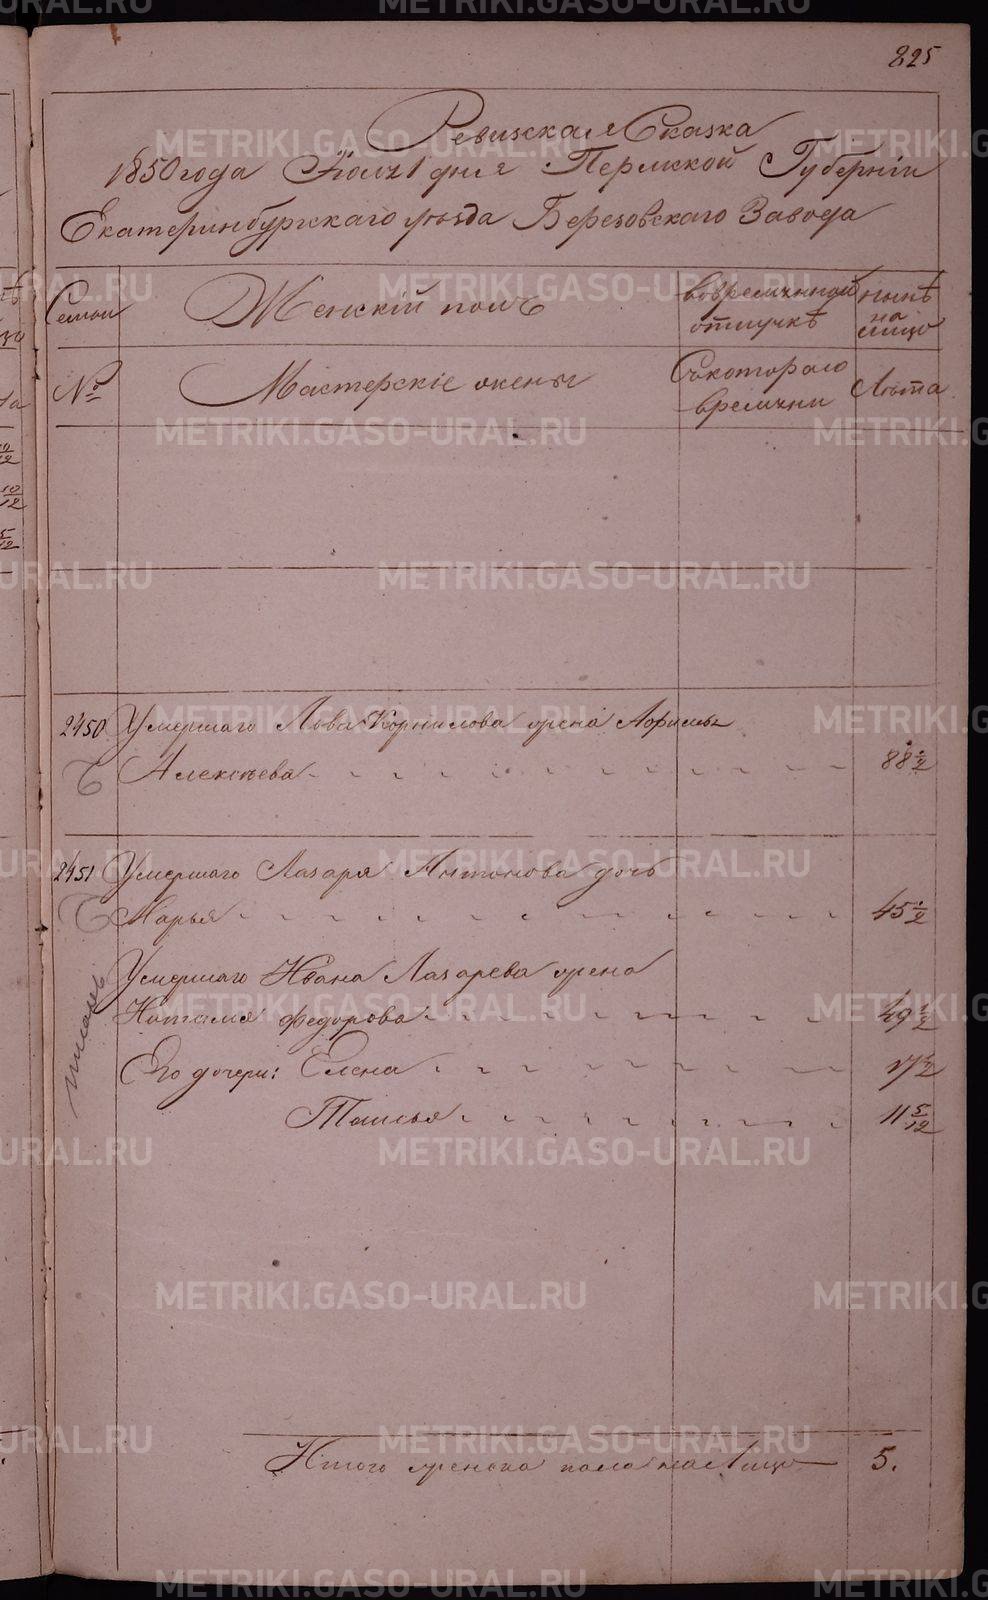 825
Ревизская Сказка
1850 года Юля 1 дня Пермской Губерніи
Екатеринбургскаго уѣзда Березовскаго Завода
Семьи
Женскій полъ
Во временной отлучкѣ
нынѣ на лицо
№
Мастерскіе жены
Съ котораго времени
Лѣта
2450 Умершаго Льва Корнилова жена Афимья
Алексѣева 88 1/2
2451 Умершаго Лазаря Антонова дочь
Марья 45 1/2
Умершаго Ивана Лазарева жена
Наталья Федорова 49 1/2
Его дочери: Елена 17 1/2
Таисья 11 5/12
Итого женска пола на лицо 5.
METRIKI.GASO-URAL.RU